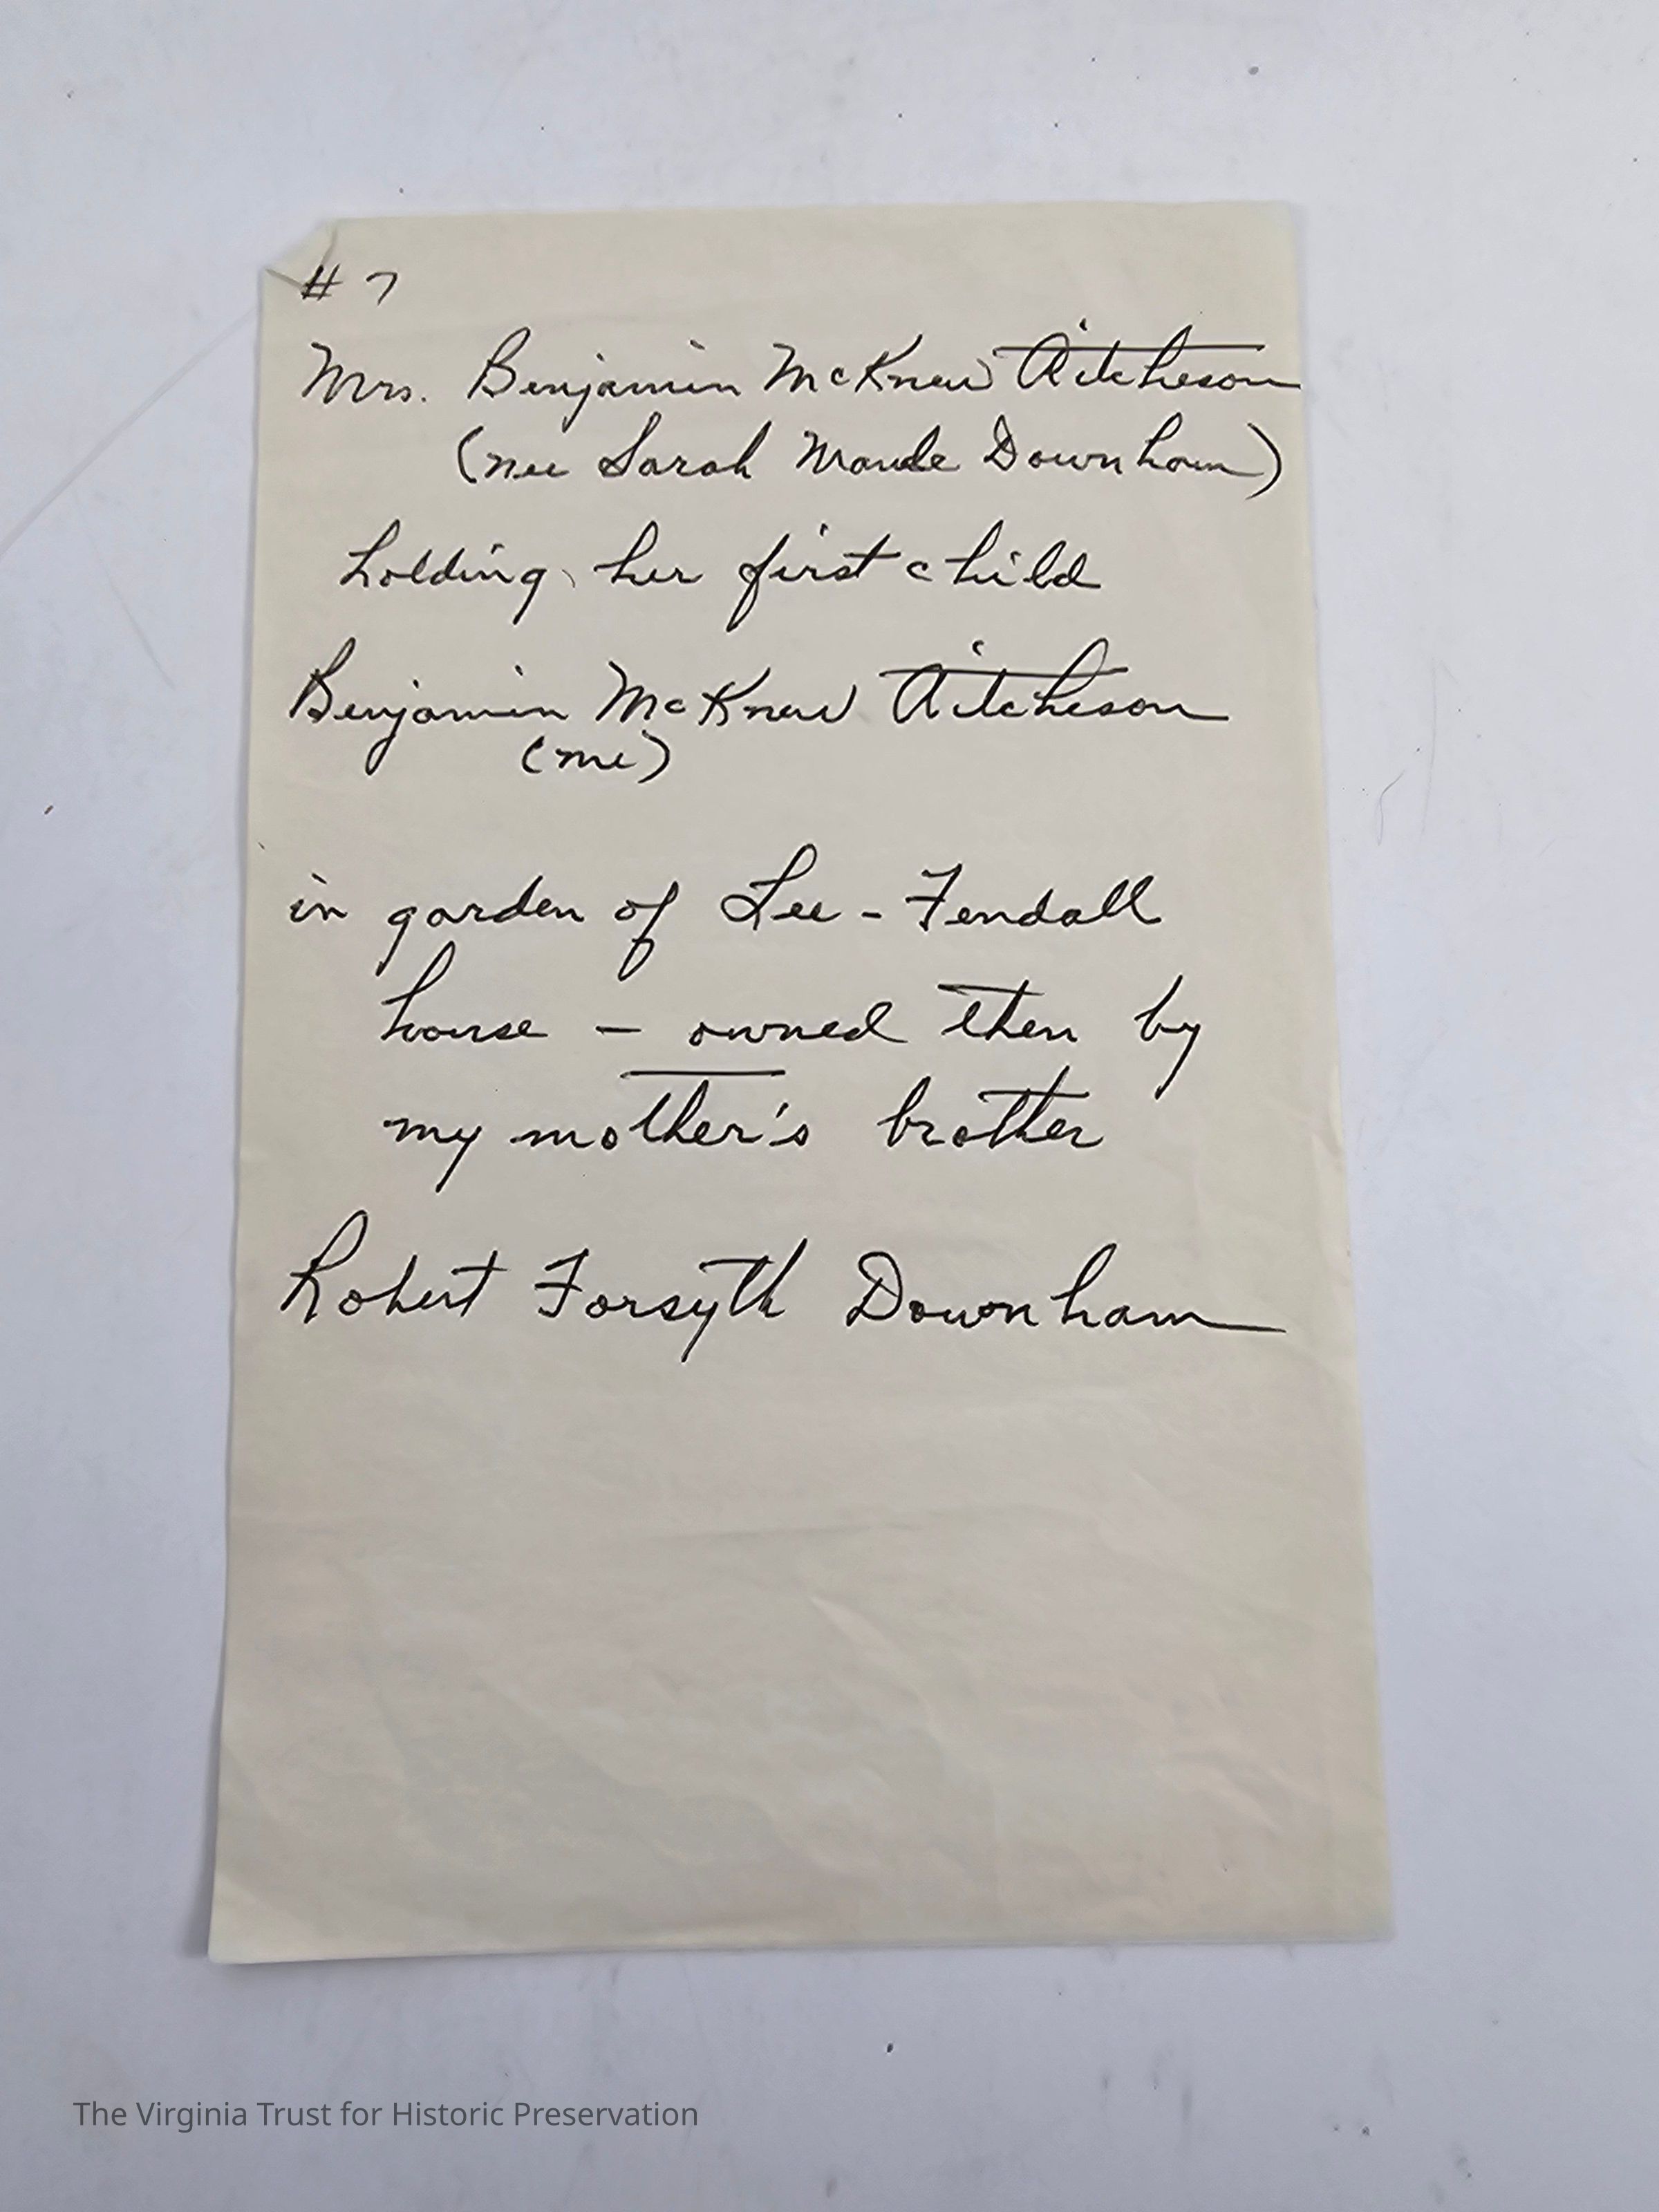 # 7
Mrs. Benjamin McKnew Aitcheson
(nee Sarah Maude Downham)
holding her first child
Benjamin McKnew Aitcheson
(me)
in garden of Lee - Fendall
house - owned then by
my mother's brother
Robert Forsyth Downham
The Virginia Trust for Historic Preservation